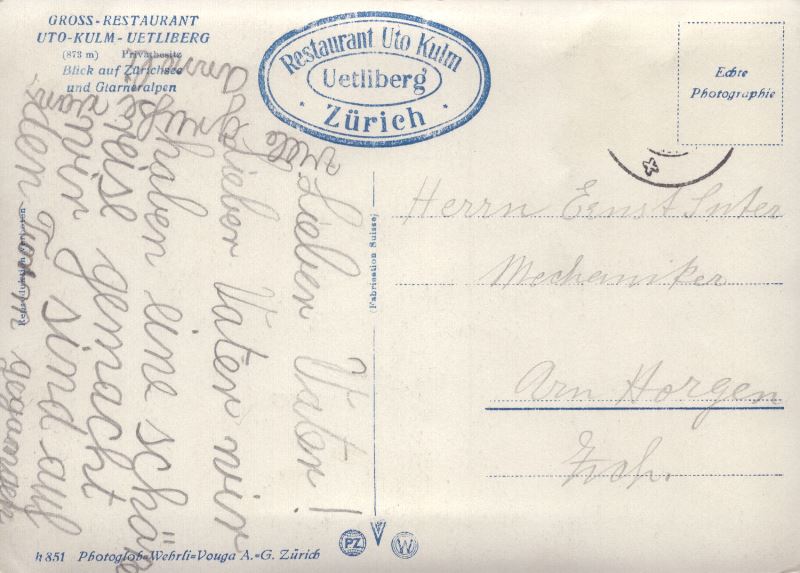 GROSS-RESTAURANT
UTO-KULM-UETLIBERG
(873 m) Privatbesitz
Blick auf Zürichsee
und Glarneralpen
Restaurant Uto Kulm
Uetliberg
· Zürich ·
Echte
Photographie
Reproduktion verboten
Fabrication Suisse
Herrn Ernst Suter
Mechaniker
Arn Horgen
Zrch.
Lieber Vater!
Lieber Vater wir
haben eine schöne
reise gemacht
wir sind auf
den Turm gegangen
viele Grüße von
h 851 Photoglob=Wehrli=Vouga A.=G. Zürich
PZ
W